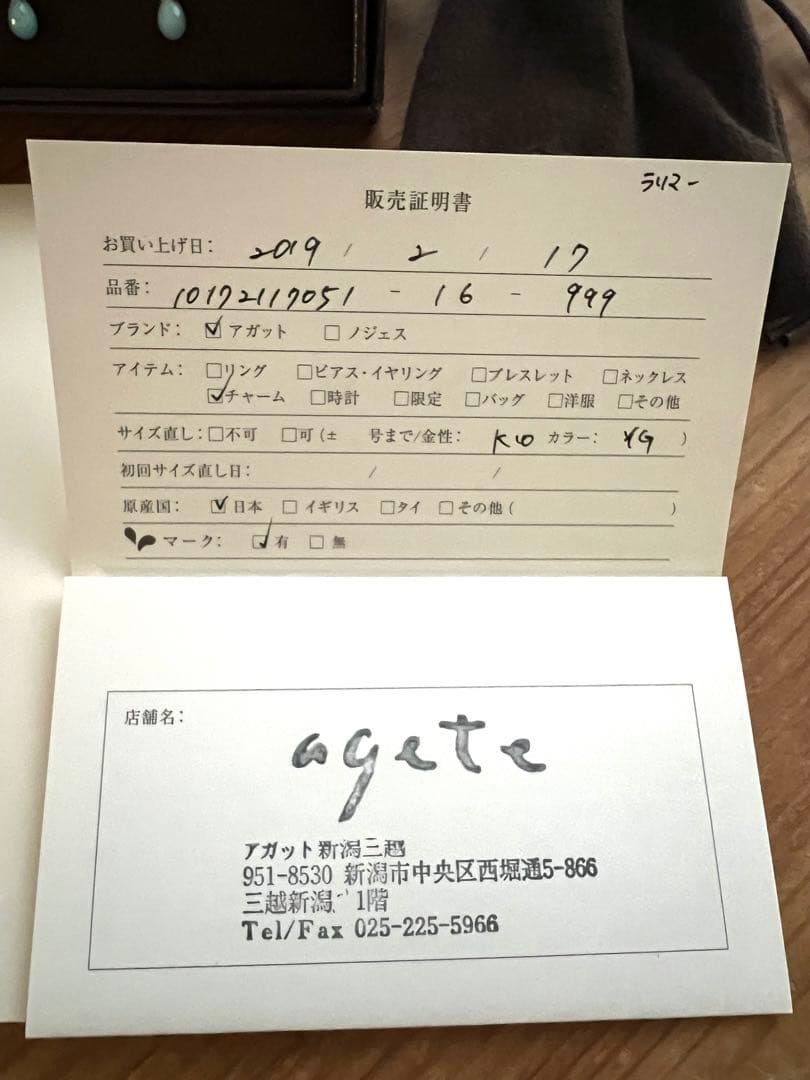 ラリマー
販売証明書
お買い上げ日： 2019 / 2 / 17
品番： 10172117051 - 16 - 999
ブランド： ☑アガット □ノジェス
アイテム： □リング □ピアス・イヤリング □ブレスレット □ネックレス
☑チャーム □時計 □限定 □バッグ □洋服 □その他
サイズ直し：□不可 □可（± 号まで/金性： K10 カラー： YG ）
初回サイズ直し日： / /
原産国： ☑日本 □イギリス □タイ □その他（ ）
マーク： ☑有 □無
店舗名：
agete
アガット新潟三越
951-8530 新潟市中央区西堀通5-866
三越新潟 1階
Tel/Fax 025-225-5966